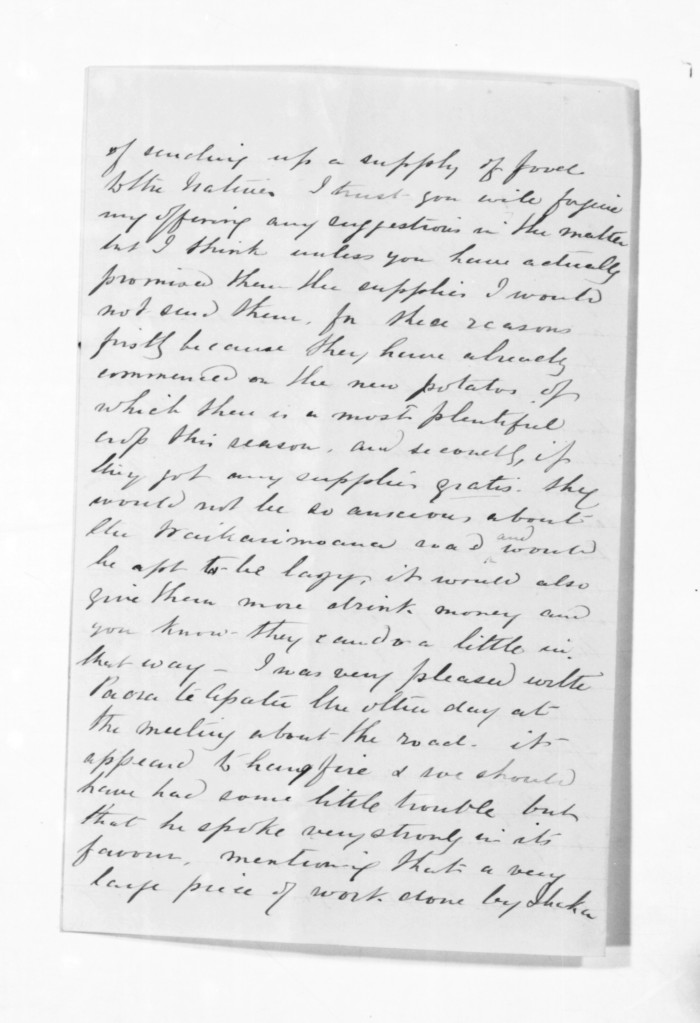 of sending up a supply of food
to the Natives I trust you will forgive
my offering any suggestions in the matter
but I think unless you have actually
promised them the supplies I would
not send them. for these reasons
firstly because they have already
commenced on the new potatos of
which there is a most plentiful
crop this season. and secondly, if
they got any supplies gratis. they
would not be so anscious about
the Waikarimoana road and would
be apt to be lazy, it would also
give them more drink money and
you know they can do a little in
that way – I was very pleased with
Paora te Apatu the other day at
the meeting about the road. it
appeard to hang fire & we should
have had some little trouble but
that he spoke very strongly in its
favour, mentioning that a very
large piece of work done by Ihaka